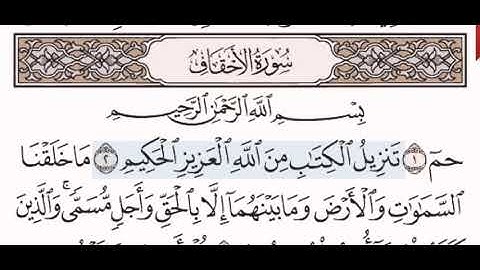 سُورَةُ الأَحْقَافِ
بِسْمِ اللَّهِ الرَّحْمَٰنِ الرَّحِيمِ
حمٓ ١ تَنزِيلُ الْكِتَابِ مِنَ اللَّهِ الْعَزِيزِ الْحَكِيمِ ٢ مَا خَلَقْنَا
السَّمَاوَاتِ وَالْأَرْضَ وَمَا بَيْنَهُمَا إِلَّا بِالْحَقِّ وَأَجَلٍ مُّسَمًّى ۚ وَالَّذِينَ